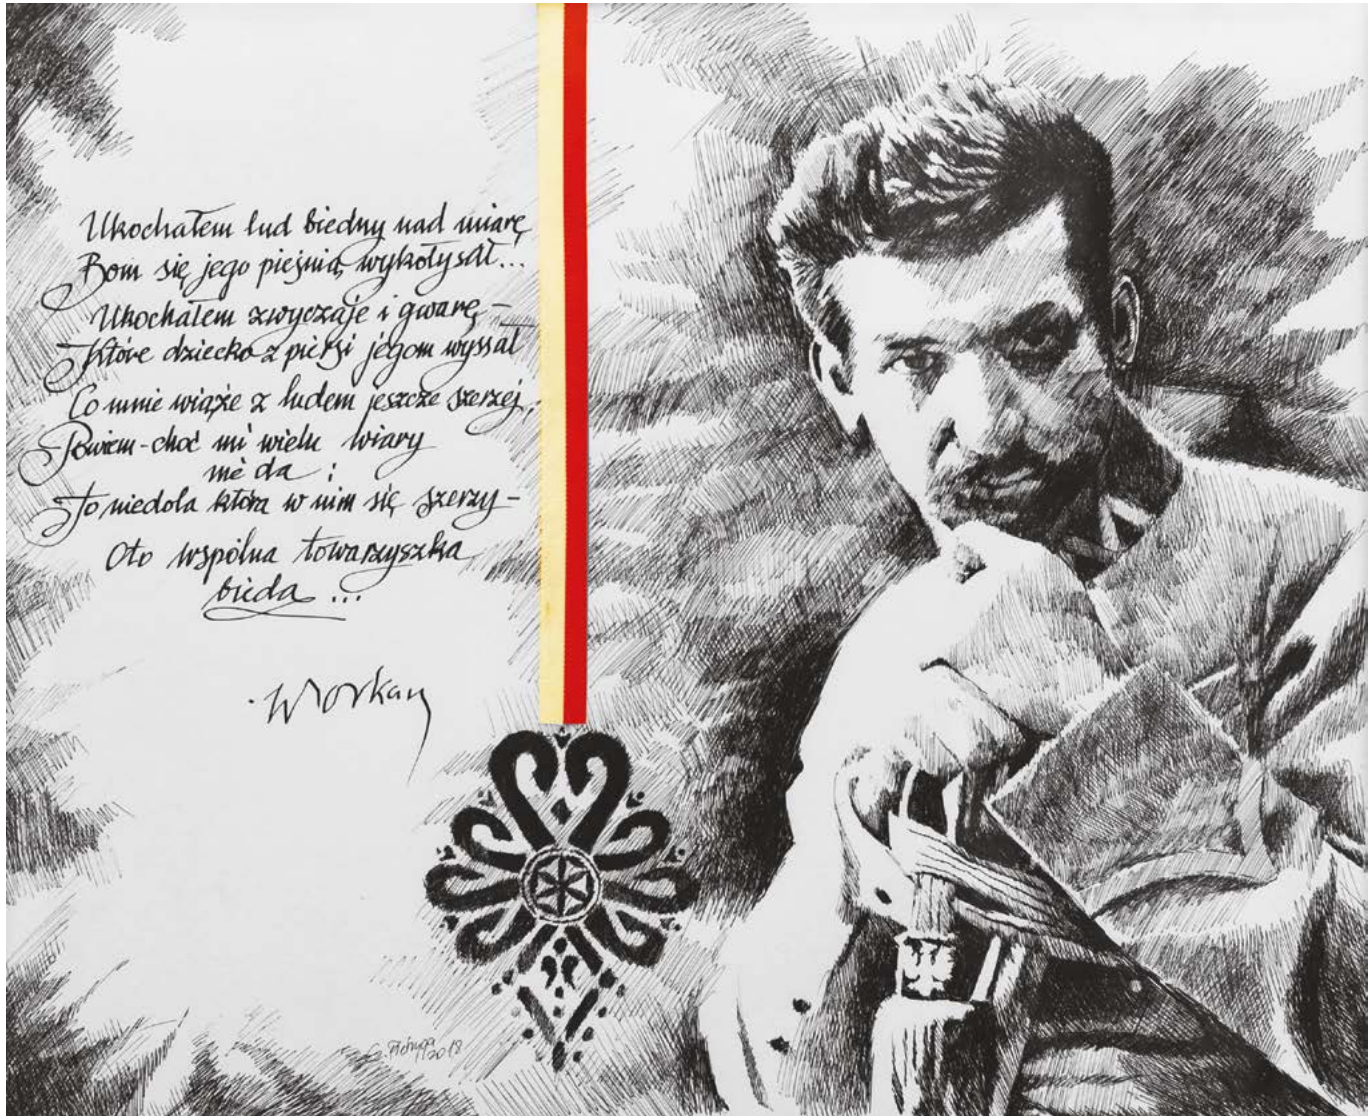 Ukochałem lud biedny nad miarę
Bom się jego pieśnią wykołysał...
Ukochałem zwyczaje i gwarę –
Które dziecko z piersi jegom wyssał
Co mnie wiąże z ludem jeszcze szerzej,
Powiem - choć mi wielu wiary
nie da :
To niedola która w nim się szerzy –
Oto wspólna towarzyszka
bieda ...
W Orkan
2018